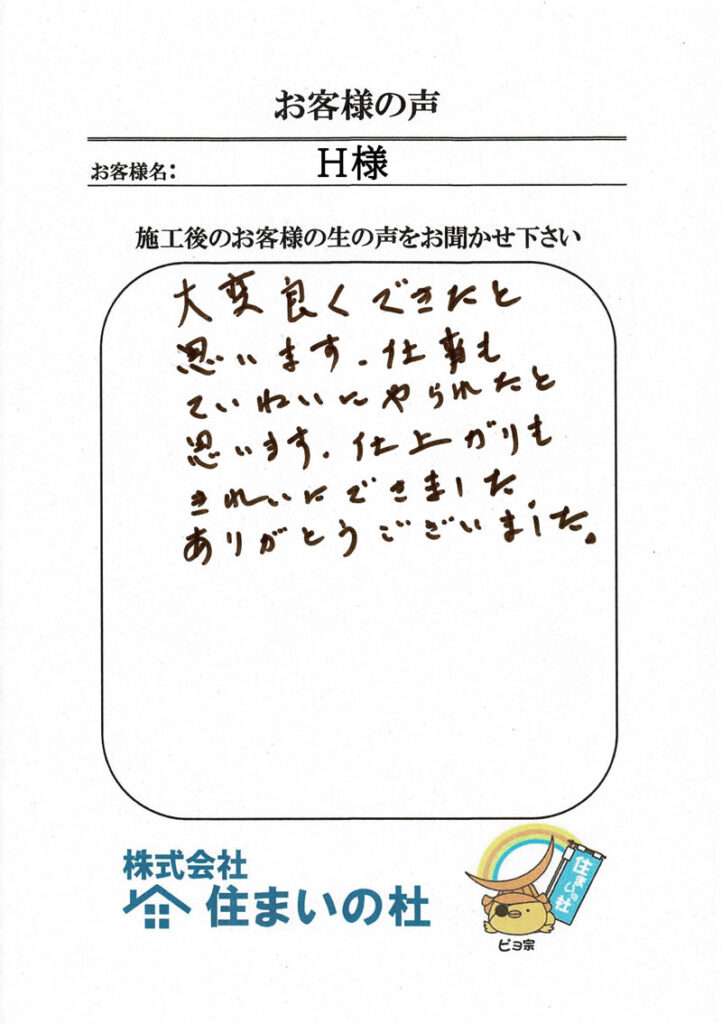 お客様の声
お客様名: H様
施工後のお客様の生の声をお聞かせ下さい
大変良くできたと
思います.仕事も
ていねいにやられたと
思います.仕上がりも
きれいにできました
ありがとうございました。
株式会社
住まいの杜
住まいの杜
ピヨ宗